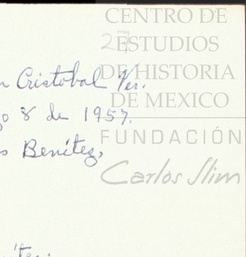 CENTRO DE
27
ESTUDIOS
DE HISTORIA
DE MEXICO
FUNDACIÓN
Carlos Slim
n Cristobal Ver.
o 8 de 1957.
s Benítez,